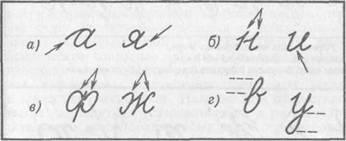 а) а я б) н и
в) ф ж г) в у